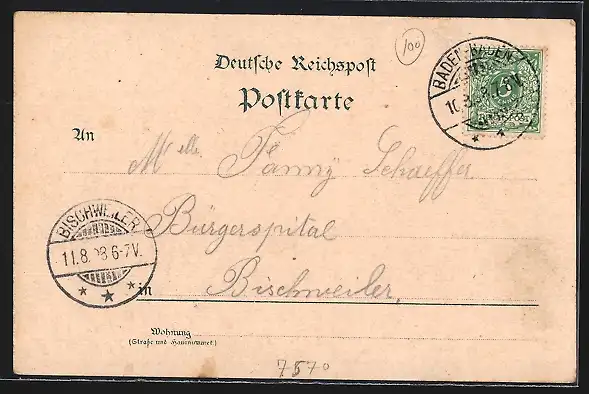 100
Deutsche Reichspost
Postkarte
BADEN-BADEN
10.8. 8. 7.V.
5
An
Mlle. Fanny Schaeffer
Bürgerspital
BISCHWEILER
11.8.98 6-7V.
in Bischweiler,
Wohnung
(Straße und Hausnummer.)
7570